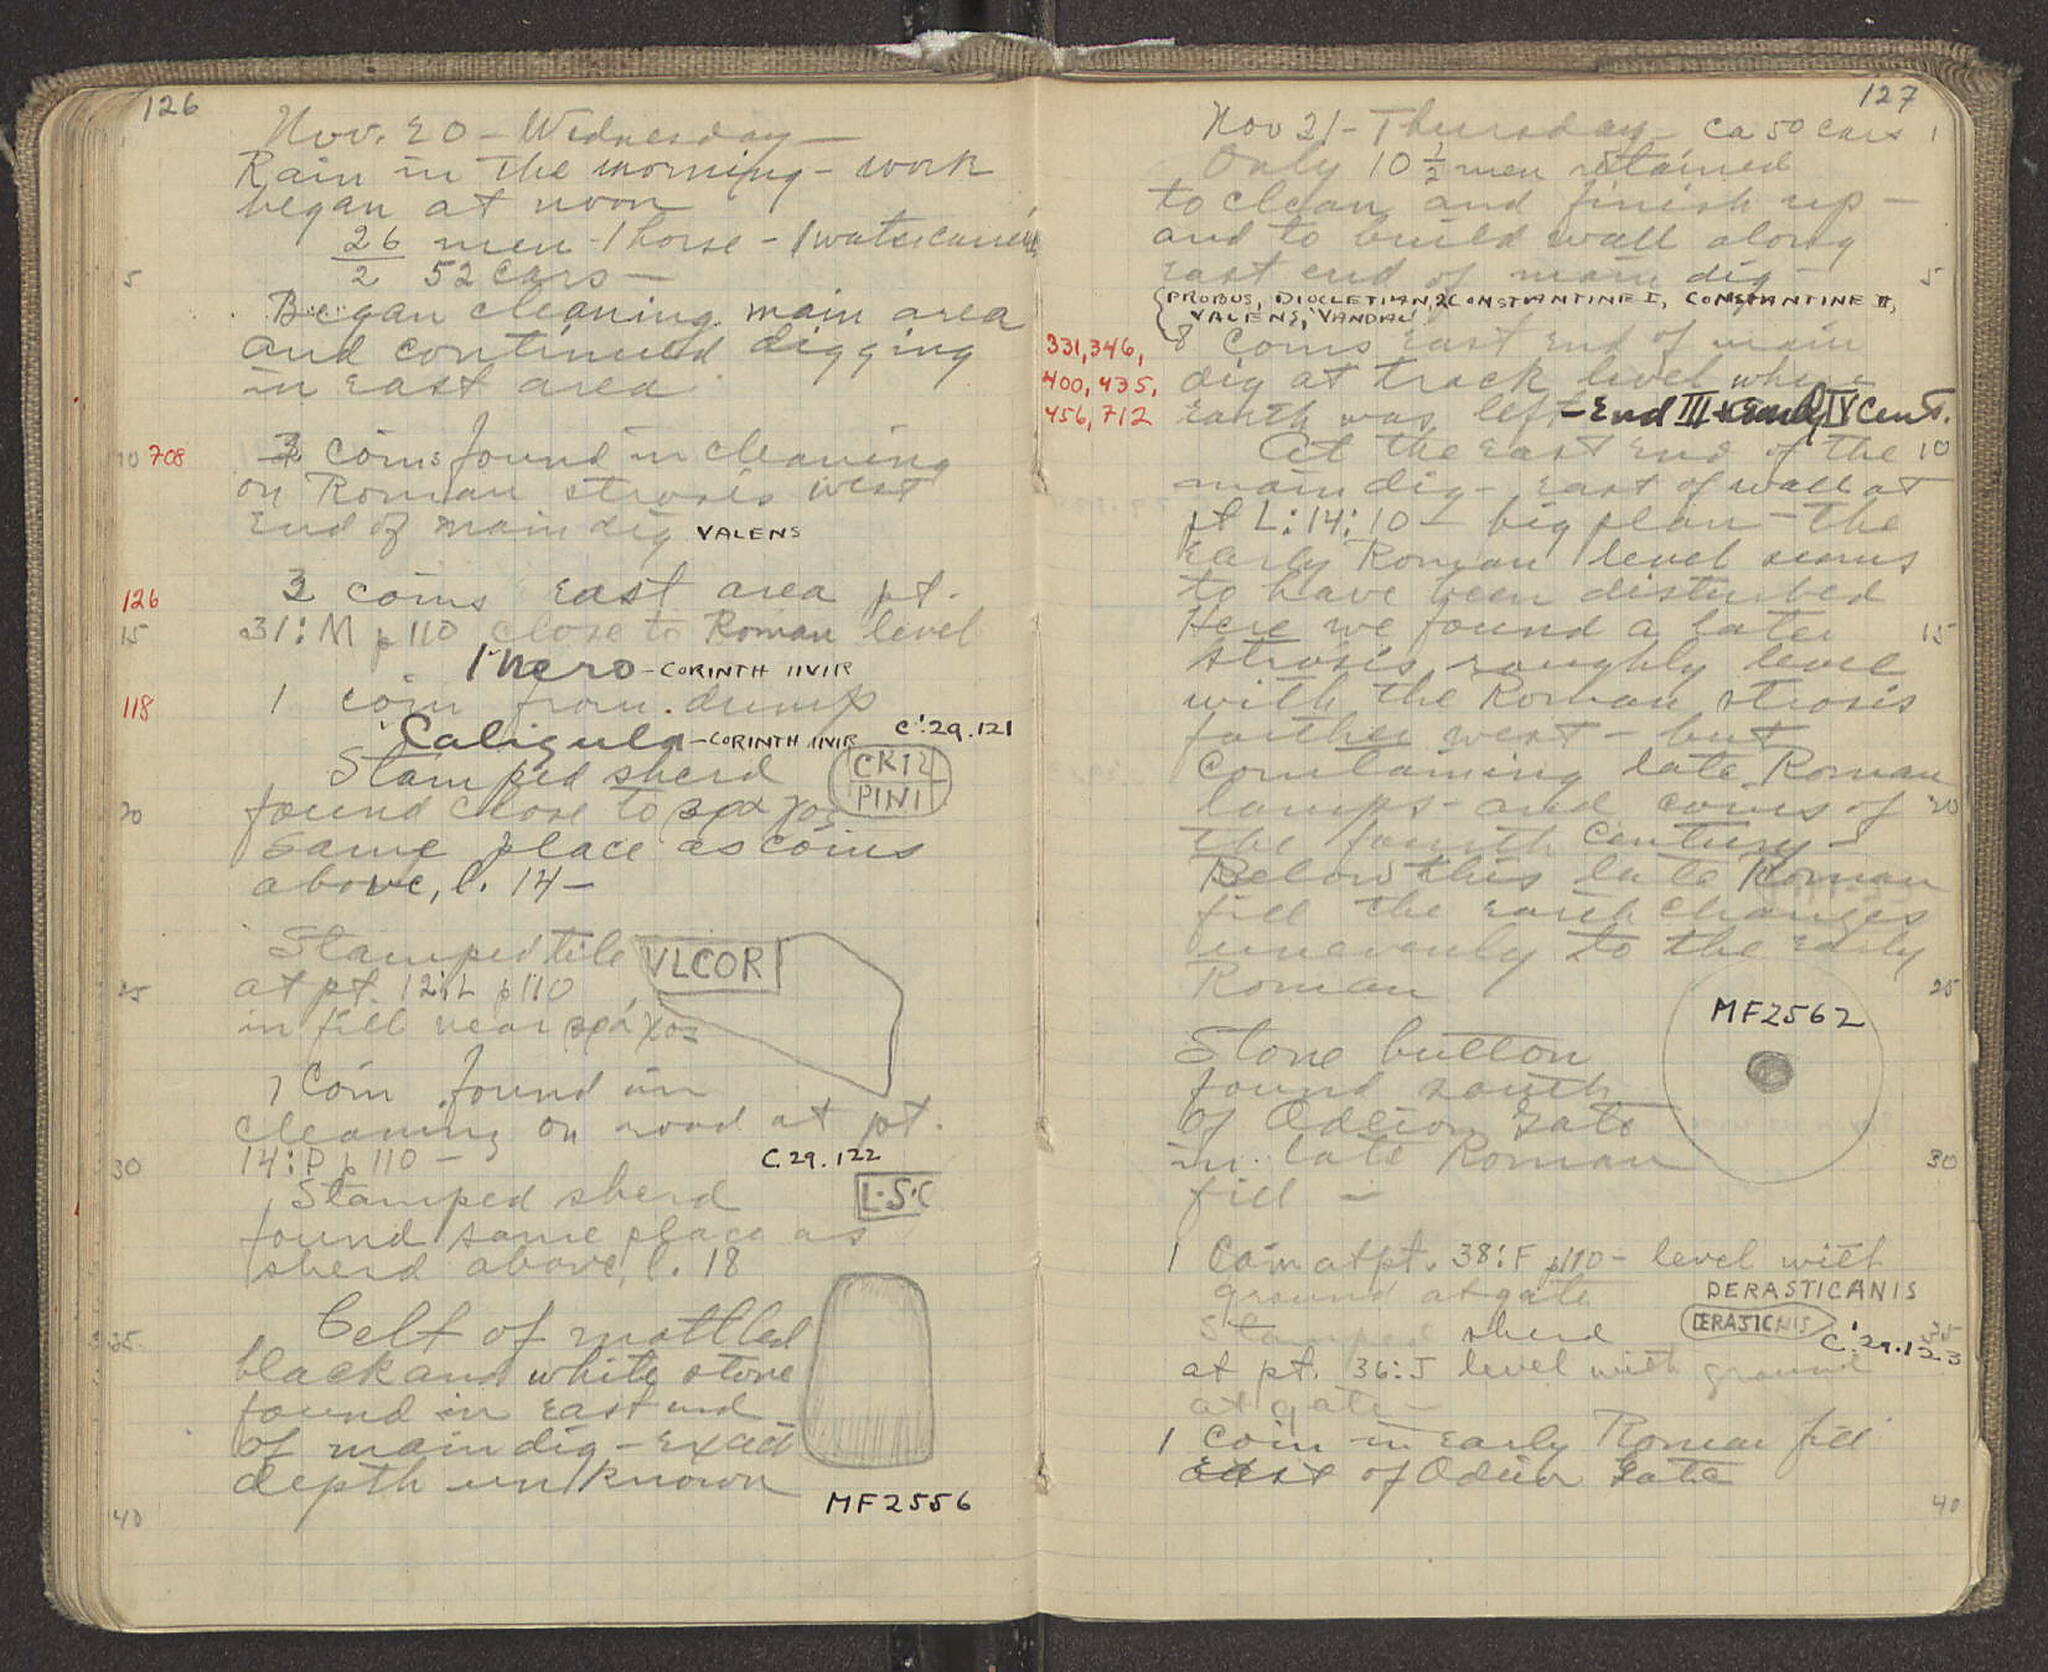 126
1
Nov. 20 - Wednesday -
Rain in the morning - work
began at noon
26 men - 1 horse - 1 water carrier
2 52 cars -
5
Began cleaning main area
and continued digging
in east area
10 708 coins found in cleaning
on Roman strosis west
end of main dig VALENS
126 coins east area pt.
15 31:M p 110 close to Roman level
1 Nero - CORINTH IIVIR
118 1 coin from dump
Caligula - CORINTH IIVIR C.29.121
Stamped sherd CK12
PINI
20 found close to βραχος
same place as coins
above, l. 14 -
Stamped tile VLCOR
25 at pt. 12:L p 110
in fill near βραχος
1 Coin found in
cleaning on road at pt.
30 14:P p 110 - C.29.122
Stamped sherd L·S·C
found same place as
sherd above, l. 18
35 Celt of mottled
black and white stone
found in east end
of main dig - exact
depth unknown
MF2556
40
127
Nov 21 - Thursday - ca 50 cars 1
Only 10 1/2 men retained
to clean and finish up -
and to build wall along
east end of main dig - 5
{PROBUS, DIOCLETIAN, 2CONSTANTINE I, CONSTANTINE II,
VALENS, 'VANDAL'
331,346, 8 Coins east end of main
400,435, dig at track level where
456,712 earth was left - End III + Early IV Cent.
At the east end of the 10
main dig - east of wall at
pt L:14:10 - big plan - the
early Roman level seems
to have been disturbed
Here we found a later 15
strosis roughly level
with the Roman strosis
farther west - but
Containing late Roman
lamps - and coins of 20
the fourth century -
Below this late Roman
fill the earth changes
unevenly to the early
Roman 25
MF2562
Stone button
found south
of Odeion Gate
in late Roman 30
fill -
1 Coin at pt. 38:F p110 - level with
ground at gate DERASTICANIS
Stamped sherd 35
C.29.123
at pt. 36:J level with ground
at gate -
1 coin in early Roman fill
east of Odeion Gate
40